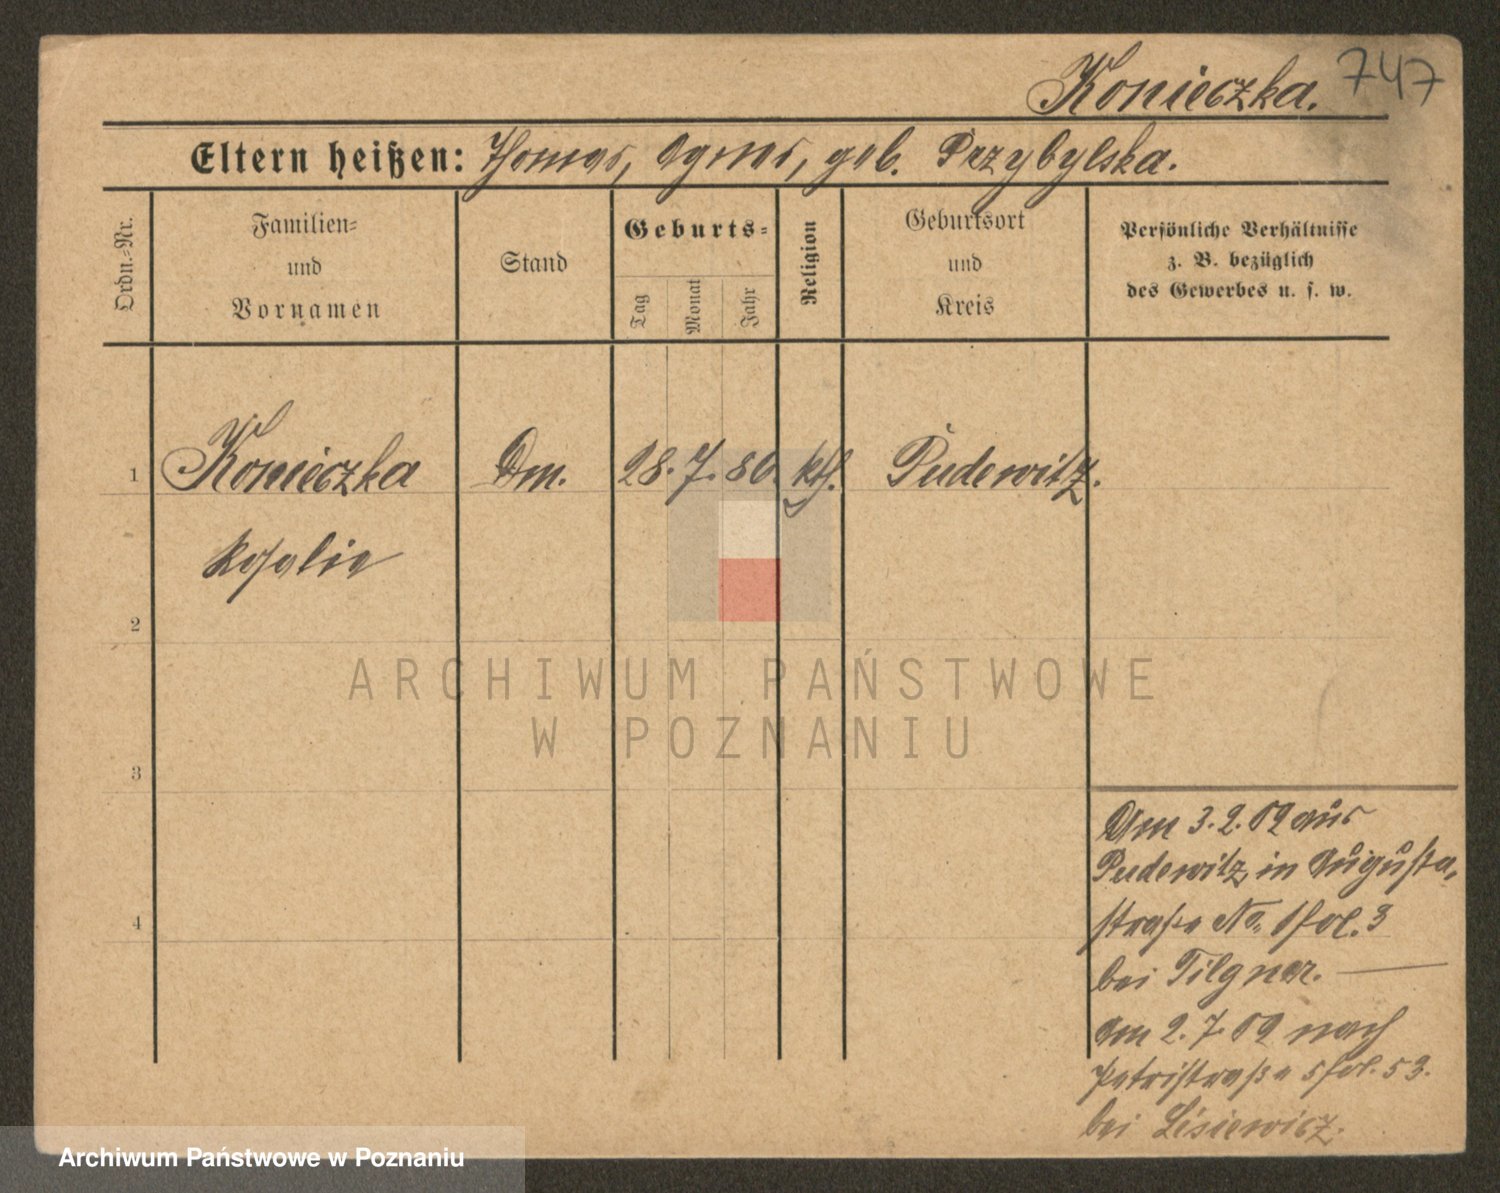 Konieczka. 747
Eltern heißen: Thomas, Agnes, geb. Przybylska.
Ordn.-Nr.
Familien-
und
Vornamen
Stand
Geburts-
Tag
Monat
Jahr
Religion
Geburtsort
und
Kreis
Persönliche Verhältnisse
z. B. bezüglich
des Gewerbes u. s. w.
1 Konieczka Dm. 28. 7. 86. kth. Pudewitz.
Rosalie
2
3
4
Am 3.2.02 aus
Pudewitz in Augusta-
straße No. 1 fol. 3
bei Tilgner.
Am 2.7.02 nach
Petristraße 5 fol. 53.
bei Lisiewicz.
ARCHIWUM PAŃSTWOWE
W POZNANIU
Archiwum Państwowe w Poznaniu